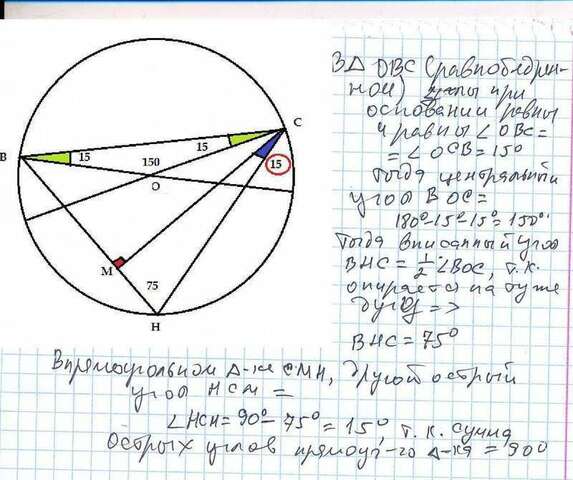 C
B
15
15
150
O
15
M
75
H
В Δ OBC (равнобедрен-
ном) углы при
основании равны
и равны ∠OBC =
= ∠OCB = 15°
Тогда центральный
угол BOC =
180°-15°-15°=150°.
Тогда вписанный угол
BHC = 1/2 ∠BOC, т.к.
опирается на ту же
дугу =>
BHC = 75°
В прямоугольном Δ-ке CMH, другой острый
угол HCM =
∠HCH = 90° - 75° = 15°, т.к. сумма
острых углов прямоуг-го Δ-ка = 90°